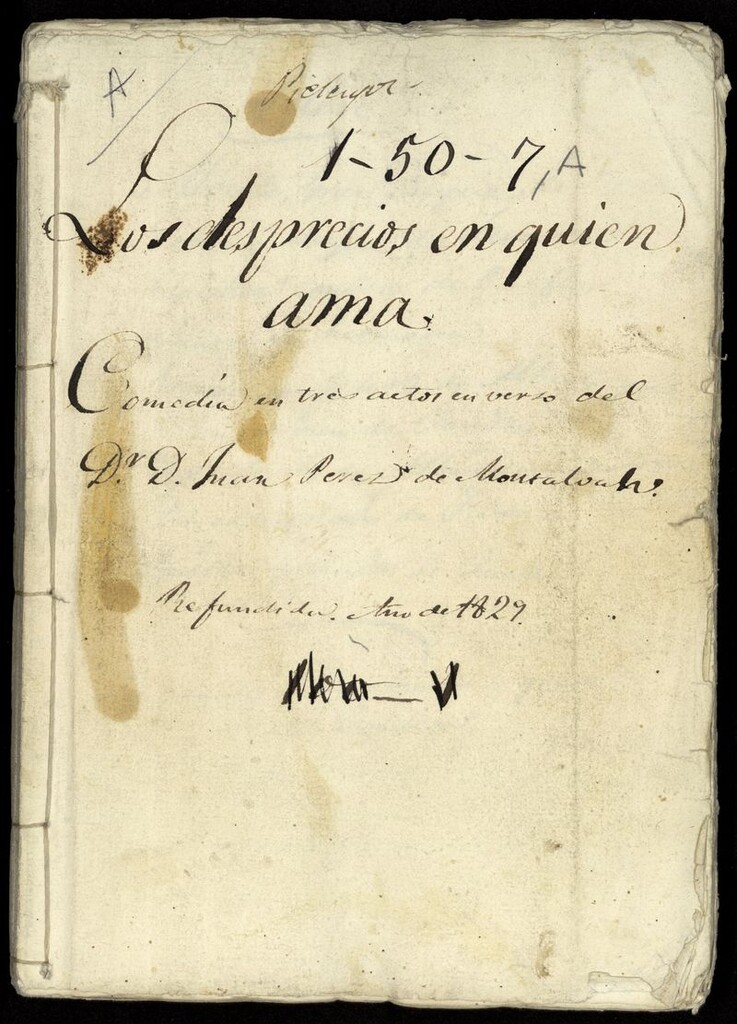 A
1-50-7, A
Los desprecios en quien
ama.
Comedia en tres actos en verso del
Dr. D. Juan Perez de Montalvan.
Refundida. Año de 1829.